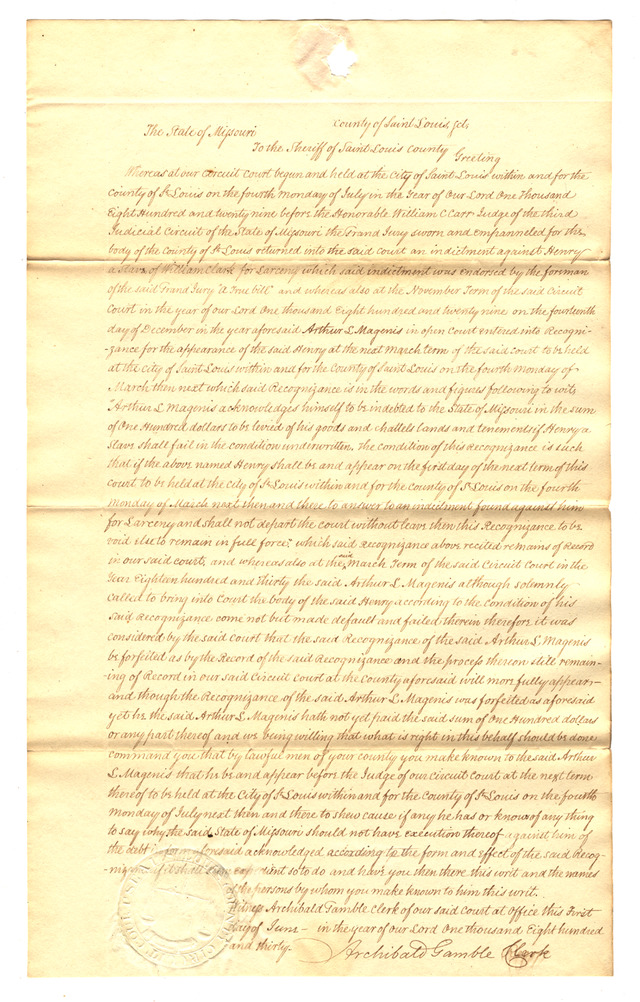 County of Saint Louis, Sct,
The State of Missouri
To the Sheriff of Saint Louis County Greeting
Whereas at our Circuit Court begun and held at the City of Saint Louis within and for the
County of St Louis on the fourth Monday of July in the Year of Our Lord One thousand
Eight Hundred and twenty nine before the Honorable William C Carr Judge of the third
Judicial Circuit of the State of Missouri the Grand Jury sworn and empannelled for the
body of the County of St Louis returned into the said court an indictment against Henry
a Slave of William Clark for Larceny which said indictment was endorsed by the foreman
of the said Grand Jury "A true bill" and whereas also at the November Term of the said Circuit
Court in the year of our Lord One thousand Eight hundred and twenty nine on the fourteenth
day of December in the year aforesaid Arthur L Magenis in open Court entered into Recogni-
zance for the appearance of the said Henry at the next March term of the said court to be held
at the city of Saint Louis within and for the County of Saint Louis on the fourth Monday of
March then next which said Recognizance is in the words and figures following to wit,
"Arthur L Magenis acknowledges himself to be indebted to the State of Missouri in the sum
of One Hundred dollars to be levied of his goods and chattels lands and tenements if Henry a
Slave shall fail in the condition underwritten. The condition of this Recognizance is such
that if the above named Henry shall be and appear on the first day of the next term of this
Court to be held at the city of St Louis within and for the county of St Louis on the fourth
Monday of March next then and there to answer to an indictment found against him
for Larceny and shall not depart the court without leave then this Recognizance to be
void else to remain in full force," which said recognizance above recited remains of Record
in our said court, and whereas also at the said March Term of the said Circuit Court in the
Year Eighteen hundred and Thirty the said Arthur L Magenis although solemnly
called to bring into Court the body of the said Henry according to the condition of his
Said Recognizance come not but made default and failed therein therefore it was
considered by the said Court that the said Recognizance of the said Arthur L Magenis
be forfeited as by the Record of the said Recognizance and the process thereon still remain-
ing of Record in our said Circuit court at the County aforesaid will more fully appear—
and though the Recognizance of the said Arthur L Magenis was forfeited as aforesaid
yet he the said Arthur L Magenis hath not yet paid the said sum of One Hundred dollars
or any part thereof and we being willing that what is right in this behalf should be done
command you that by lawful men of your county you make known to the said Arthur
L Magenis that he be and appear before the Judge of our Circuit Court at the next term
thereof to be held at the City of St Louis within and for the County of St Louis on the fourth
Monday of July next then and there to shew cause if any he has or know of any thing
to say why the said State of Missouri should not have execution thereof against him of
the debt in form aforesaid acknowledged according to the form and effect of the said Recog-
nizance if it shall seem expedient so to do and have you then there this writ and the names
of the persons by whom you make known to him this writ.
Witness Archibald Gamble Clerk of our said Court at Office this First
day of June — in the year of our Lord One thousand Eight hundred
and thirty.—
Archibald Gamble Clerk